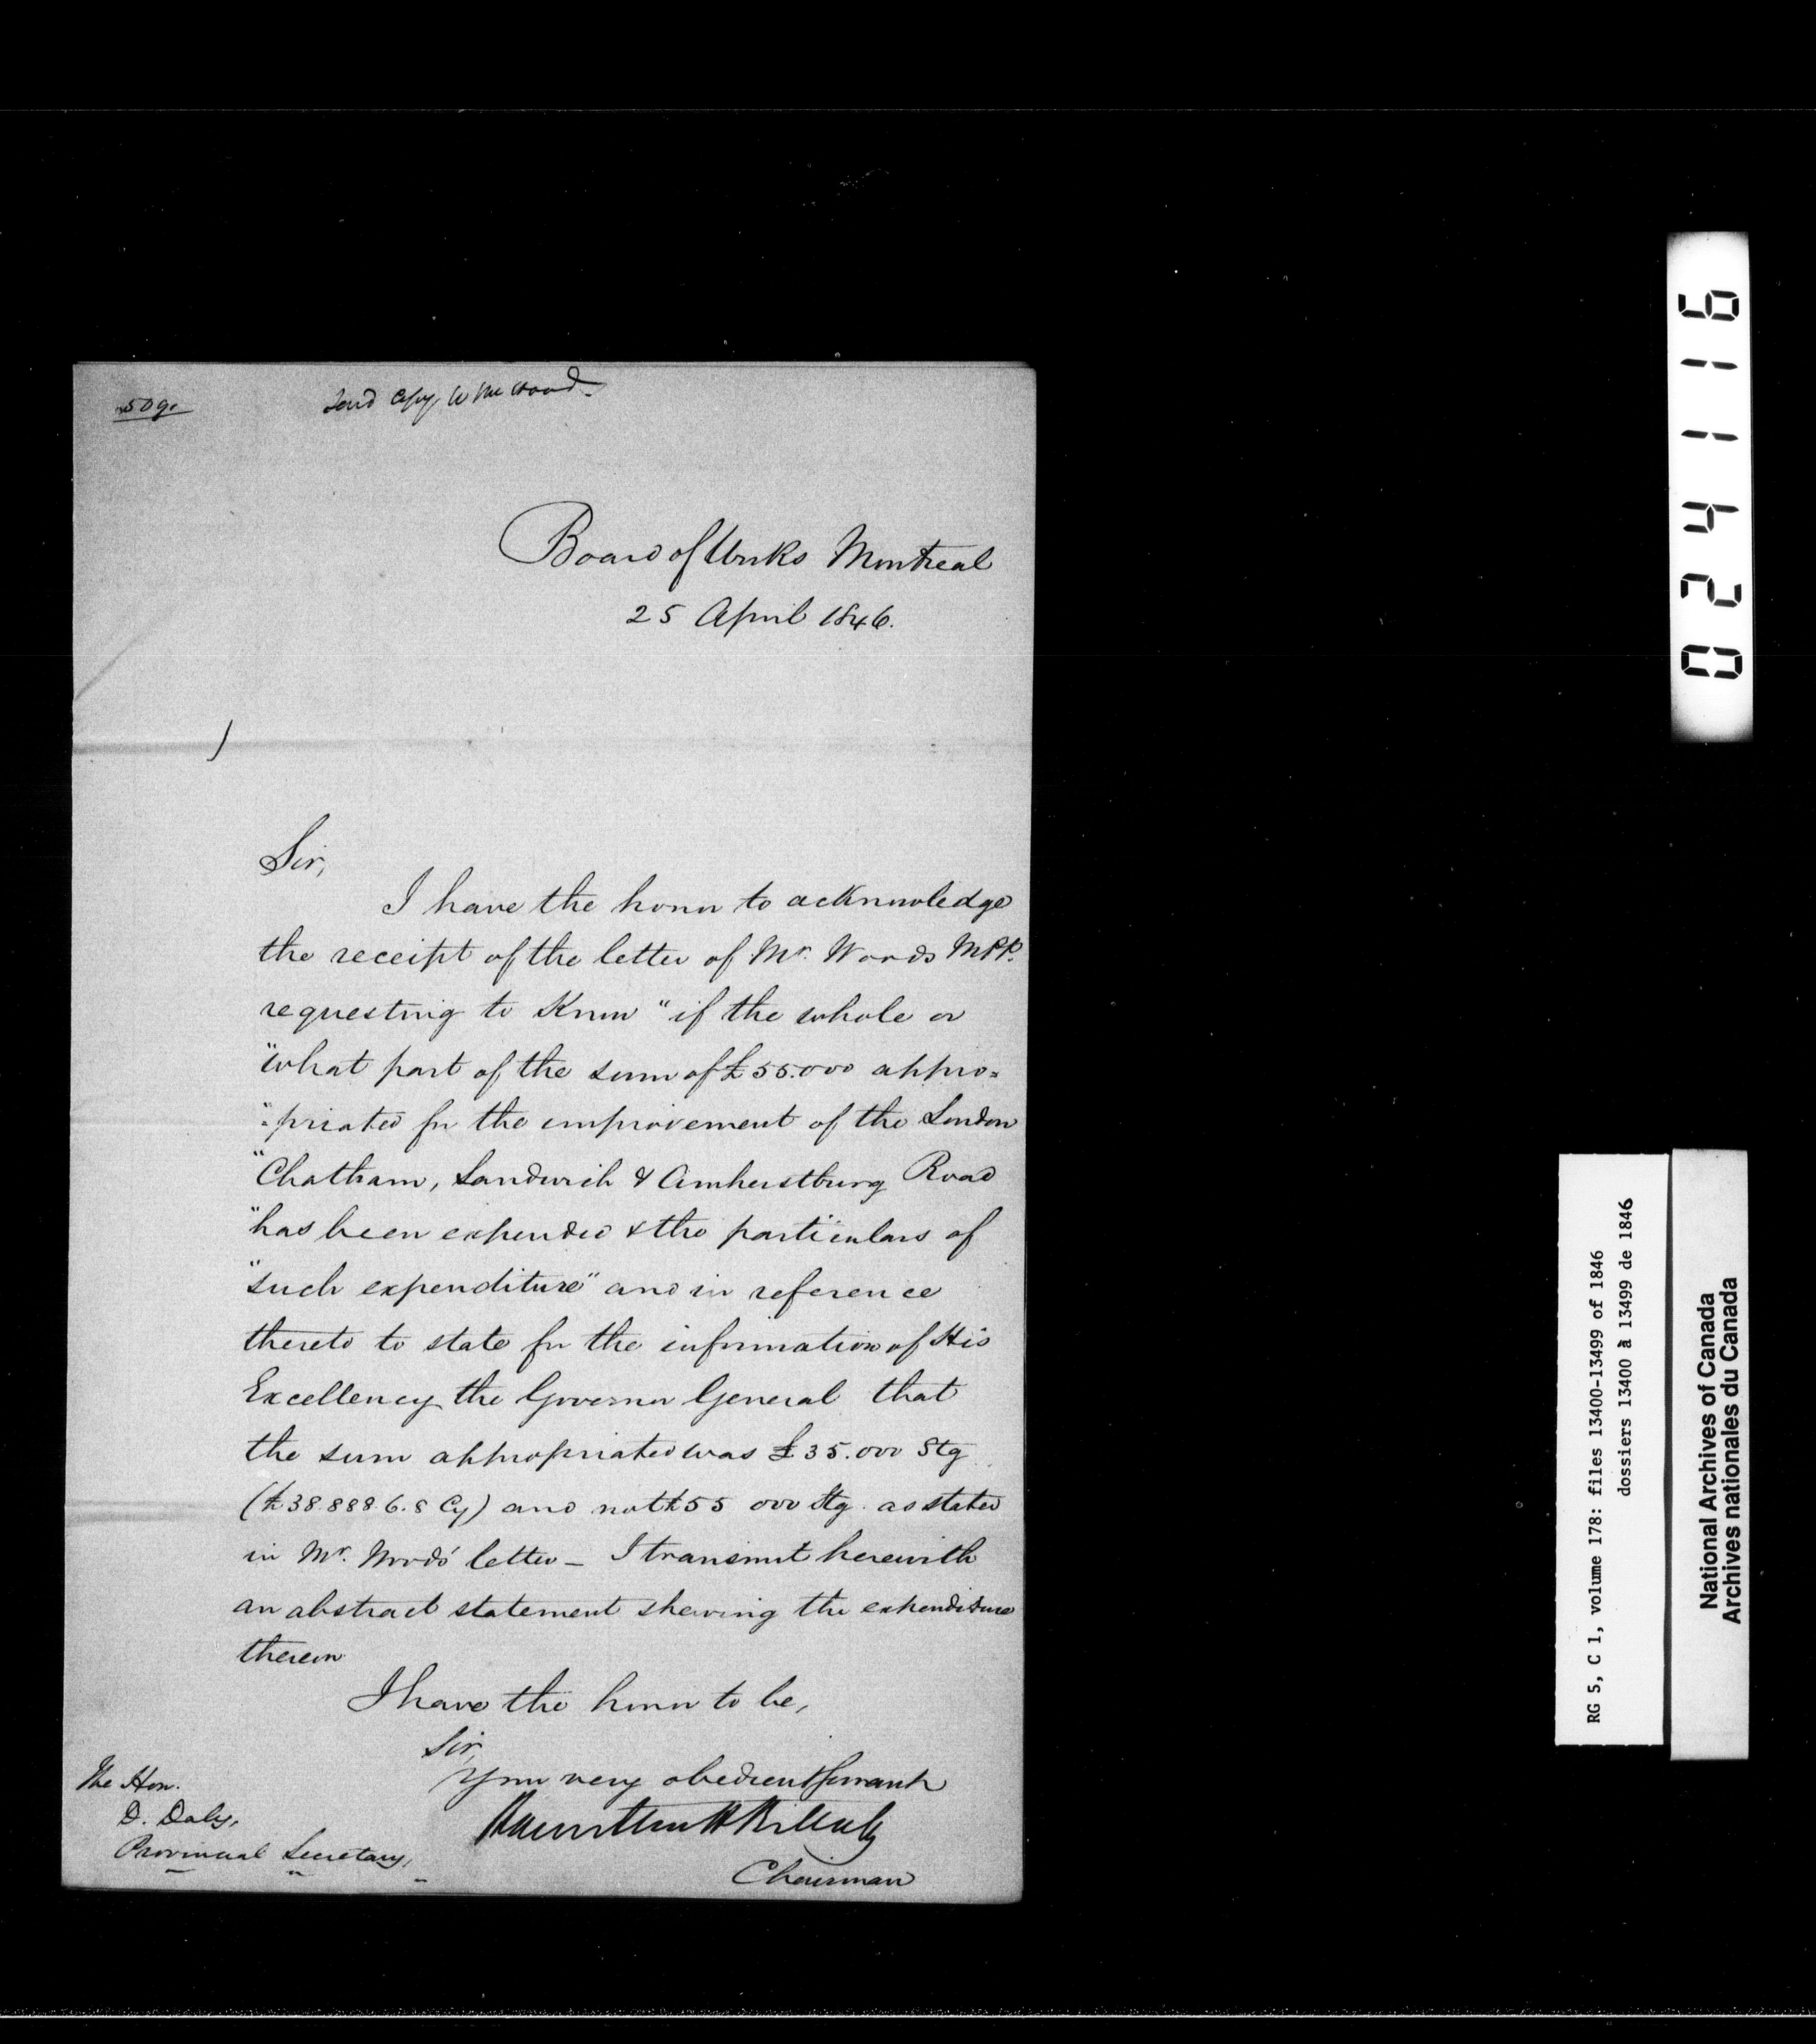 509.
Send Copy to Mr Wood
Board of Works Montreal
25 April 1846.
Sir,
I have the honor to acknowledge
the receipt of the letter of Mr. Woods MPP.
requesting to know "if the whole or
"what part of the sum of £55.000 appro=
"=priated for the improvement of the London
"Chatham, Sandwich & Amherstburg Road
"has been expended & the particulars of
"such expenditure" and in reference
thereto to state for the information of His
Excellency the Governor General that
the sum appropriated was £35.000 Stg
(£38.888.6.8 Cy) and not £55 000 Stg. as stated
in Mr. Woods' letter – I transmit herewith
an abstract statement shewing the expenditure
thereon
I have the honor to be,
Sir,
Your very obedient Servant
Hamilton H Killaly
Chairman
The Hon.
D. Daly,
Provincial Secretary,
024116
RG 5, C 1, volume 178: files 13400-13499 of 1846
dossiers 13400 à 13499 de 1846
National Archives of Canada
Archives nationales du Canada